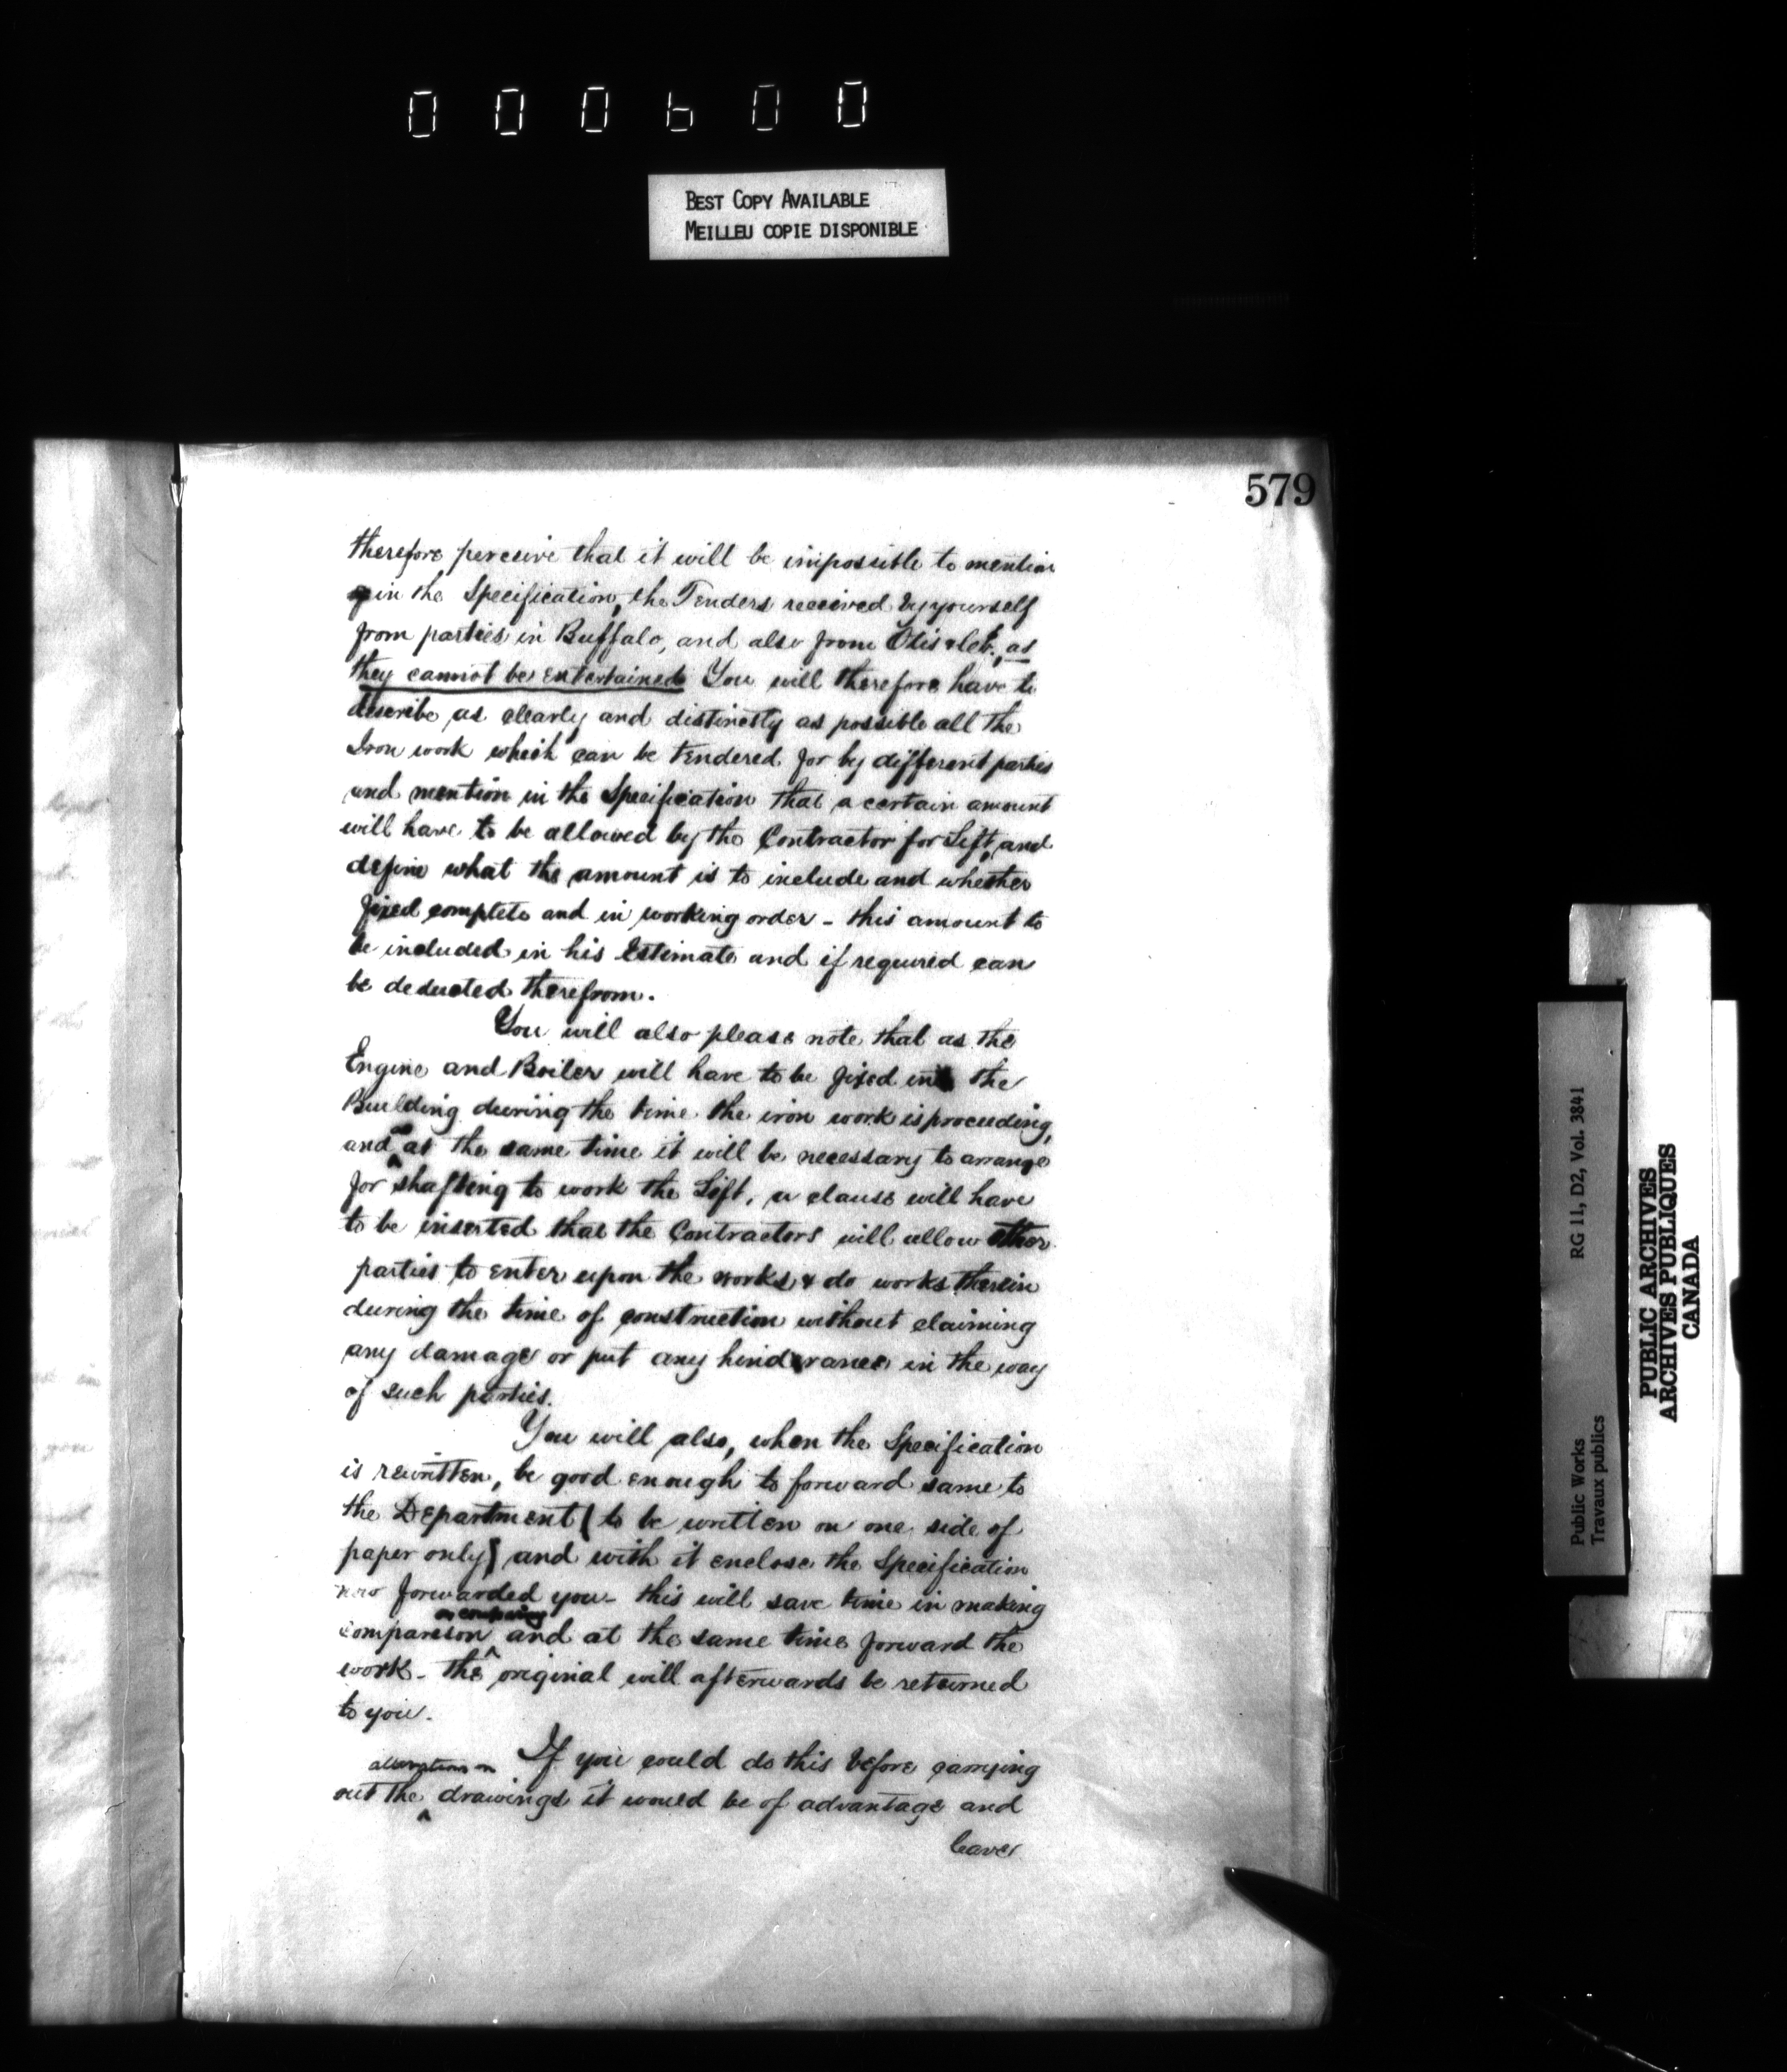 000600
BEST COPY AVAILABLE
MEILLEU COPIE DISPONIBLE
579
therefore perceive that it will be impossible to mention
in the Specification, the Tenders received by yourself
from parties in Buffalo, and also from Otis & Co., as
they cannot be entertained You will therefore have to
describe as clearly and distinctly as possible all the
Iron work which can be tendered for by different parties
and mention in the Specification that a certain amount
will have to be allowed by the Contractor for Lift, and
define what the amount is to include and whether
fixed complete and in working order - this amount to
be included in his Estimate and if required can
be deducted therefrom.
You will also please note that as the
Engine and Boiler will have to be fixed in the
Building during the time the iron work is proceeding,
and as at the same time it will be necessary to arrange
for shafting to work the Lift, a clause will have
to be inserted that the Contractors will allow other
parties to enter upon the works & do works therein
during the time of construction without claiming
any damage or put any hinderance in the way
of such parties.
You will also, when the Specification
is rewritten, be good enough to forward same to
the Department (to be written on one side of
paper only) and with it enclose the Specification
now forwarded you - this will save time in making
comparison and at the same time forward the
work - the original will afterwards be returned
to you.
If you could do this before carrying
out the alterations on drawings it would be of advantage and
leave
Public Works
Travaux publics
RG 11, D2, Vol. 3841
PUBLIC ARCHIVES
ARCHIVES PUBLIQUES
CANADA